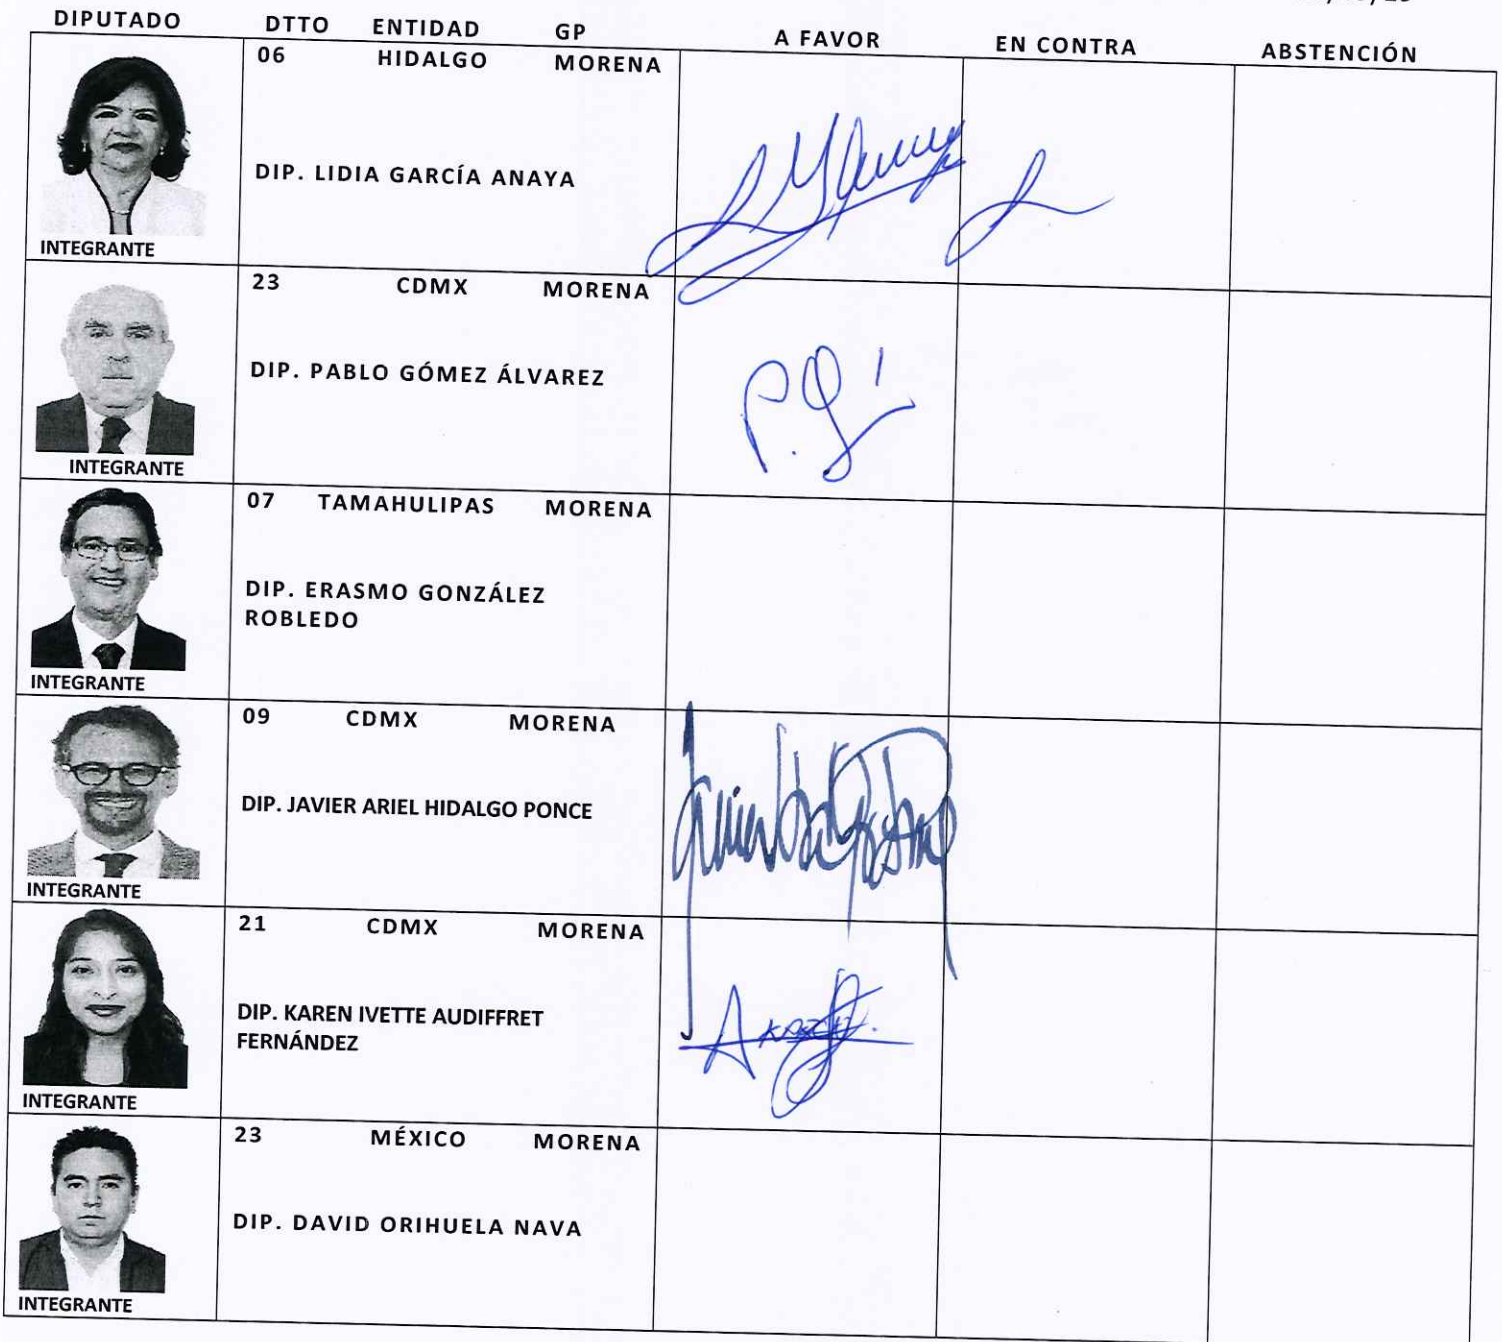 DIPUTADO DTTO ENTIDAD GP A FAVOR EN CONTRA ABSTENCIÓN
06 HIDALGO MORENA
DIP. LIDIA GARCÍA ANAYA
INTEGRANTE
23 CDMX MORENA
DIP. PABLO GÓMEZ ÁLVAREZ
P.G
INTEGRANTE
07 TAMAHULIPAS MORENA
DIP. ERASMO GONZÁLEZ
ROBLEDO
INTEGRANTE
09 CDMX MORENA
DIP. JAVIER ARIEL HIDALGO PONCE
INTEGRANTE
21 CDMX MORENA
DIP. KAREN IVETTE AUDIFFRET
FERNÁNDEZ
INTEGRANTE
23 MÉXICO MORENA
DIP. DAVID ORIHUELA NAVA
INTEGRANTE